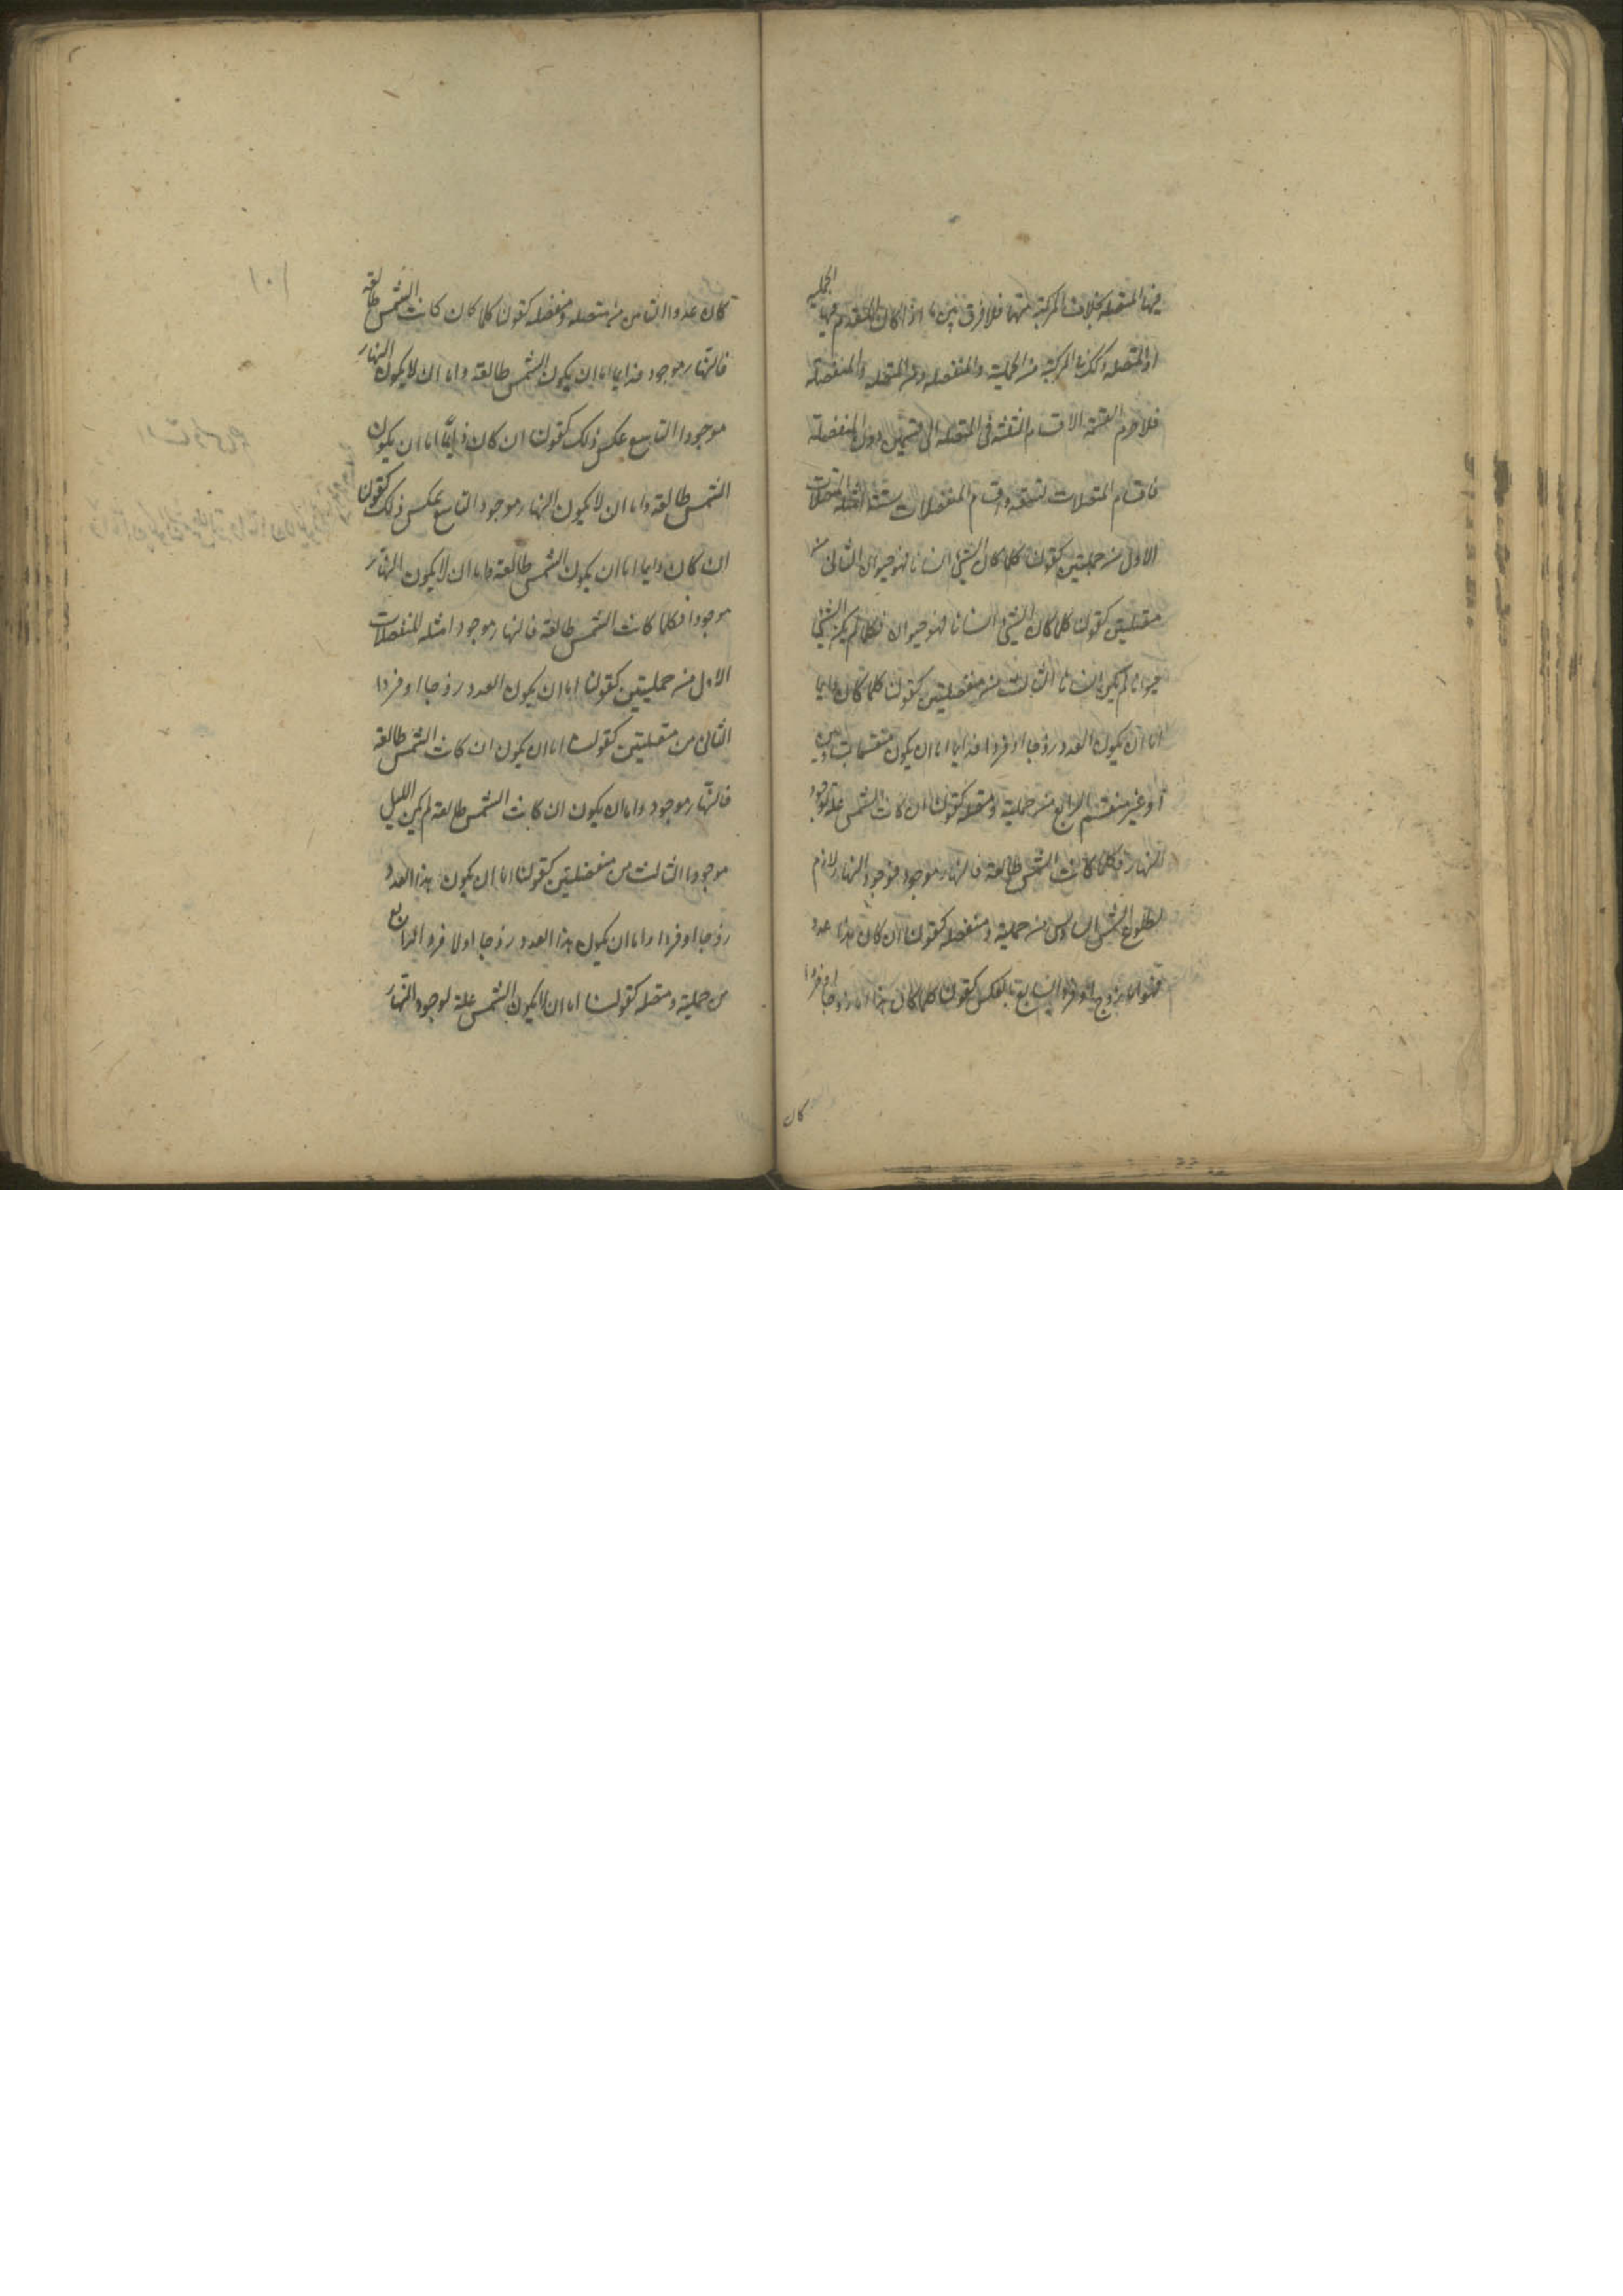 فيها المتصلة بخلاف المركبة منها فلا فرق بين ما اذا كان المقدم فيها الحملية
او المتصلة وكذلك المركبة من الحملية والمنفصلة ومن المتصلة والمنفصلة
فلا جرم انقسم الاقسام الثلثة في المتصلة الى قسمين دون المنفصلة
فاقسام المتصلات تسعة واقسام المنفصلات ستة امثلة المتصلات
الاول من حمليتين كقولنا كلما كان الشيء انسانا فهو حيوان الثاني من
متصلتين كقولنا كلما كان الشيء انسانا فهو حيوان فكلما لم يكن الشيء
حيوانا لم يكن انسانا الثالث من منفصلتين كقولنا كلما كان دايما
اما ان يكون العدد زوجا او فردا فدايما اما ان يكون منقسما بمتساويين
او غير منقسم الرابع من حملية ومتصلة كقولنا ان كانت الشمس علة لوجود
النهار فكلما كانت الشمس طالعة فالنهار موجود فوجود النهار لازم
لطلوع الشمس السادس من حملية ومنفصلة كقولنا ان كان هذا عددا
فهو اما زوج او فرد السابع بالعكس كقولنا كلما كان هذا اما زوجا او فردا
كان
١٠١
كان عددا الثامن من متصلة ومنفصلة كقولنا كلما كان كانت الشمس طالعة
فالنهار موجود فدايما اما ان يكون الشمس طالعة واما ان لا يكون النهار
موجودا التاسع عكس ذلك كقولنا ان كان دايما اما ان يكون
الشمس طالعة واما ان لا يكون النهار موجودا التاسع عكس ذلك كقولنا
ان كان دايما اما ان يكون الشمس طالعة واما ان لا يكون النهار
موجودا فكلما كانت الشمس طالعة فالنهار موجود امثلة المنفصلات
الاول من حمليتين كقولنا اما ان يكون العدد زوجا او فردا
الثاني من متصلتين كقولنا اما ان يكون ان كانت الشمس طالعة
فالنهار موجود واما ان يكون ان كانت الشمس طالعة لم يكن الليل
موجودا الثالث من منفصلتين كقولنا اما ان يكون هذا العدد
زوجا او فردا واما ان يكون هذا العدد زوجا او لا فردا الرابع
من حملية ومتصلة كقولنا اما ان لا يكون الشمس علة لوجود النهار